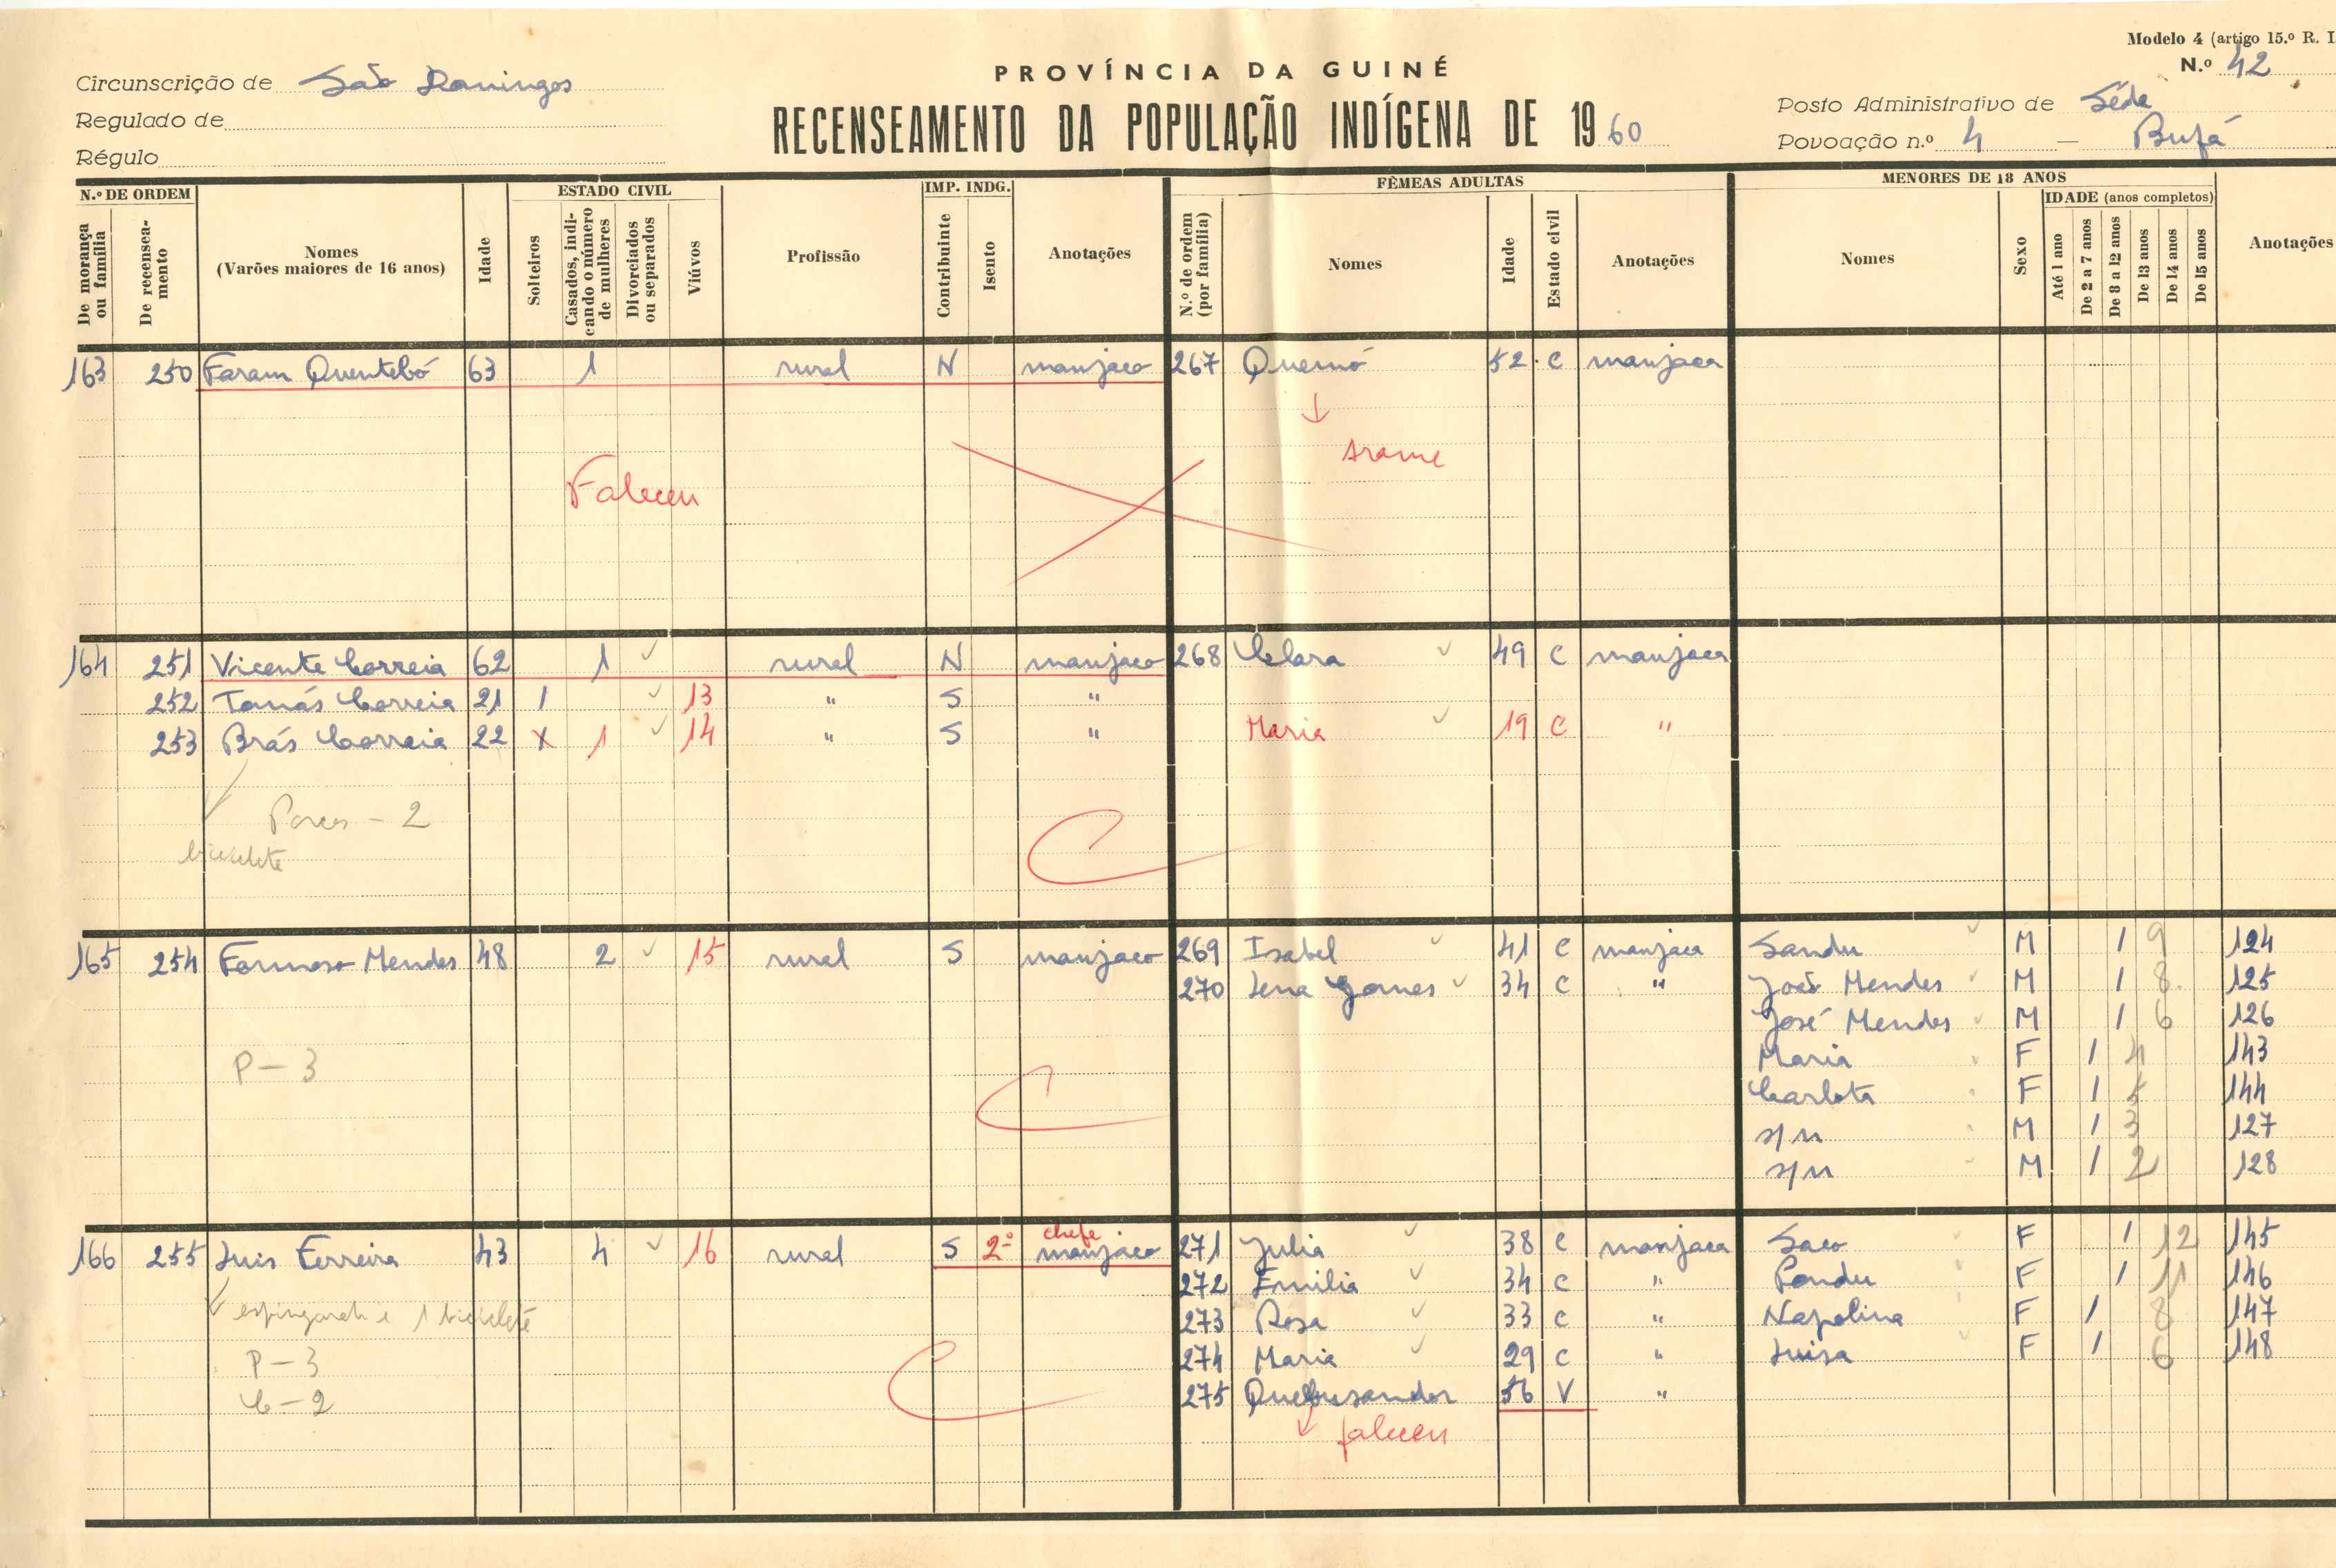 Modelo 4 (artigo 15.º R. I.
N.º 42
PROVÍNCIA DA GUINÉ
RECENSEAMENTO DA POPULAÇÃO INDÍGENA DE 1960
Circunscrição de São Domingos
Regulado de
Régulo
Posto Administrativo de Séde
Povoação n.º 4 — Bufá
N.º DE ORDEM
De morança ou família
De recenseamento
Nomes
(Varões maiores de 16 anos)
Idade
ESTADO CIVIL
Solteiros
Casados, indicando o número de mulheres
Divorciados ou separados
Viúvos
Profissão
IMP. INDG.
Contribuinte
Isento
Anotações
FÊMEAS ADULTAS
N.º de ordem (por família)
Nomes
Idade
Estado civil
Anotações
MENORES DE 18 ANOS
Nomes
Sexo
IDADE (anos completos)
Até 1 ano
De 2 a 7 anos
De 8 a 12 anos
De 13 anos
De 14 anos
De 15 anos
Anotações
163 250 Faram Quentebó 63 1 rural N manjaco 267 Quemó 52 C manjaca
Arame
Faleceu
164 251 Vicente Correia 62 1 rural N manjaco 268 Clara 49 C manjaca
252 Tomás Correia 21 1 13 " S "
253 Brás Correia 22 X 1 14 " S " Maria 19 C "
Porcos - 2
bicicleta
165 254 Formoso Mendes 48 2 15 rural S manjaco 269 Isabel 41 C manjaca Sandu M 1 9 124
270 Lena Gomes 34 C " João Mendes M 1 8 125
José Mendes M 1 6 126
Maria F 1 4 143
P - 3
Carlota F 1 5 144
s/n M 1 3 127
s/n M 1 2 128
166 255 Luis Ferreira 43 4 16 rural S 2º chefe manjaco 271 Julia 38 C manjaca Saco F 1 12 145
272 Emilia 34 C " Pandu F 1 11 146
espingarda e 1 bicicleta 273 Rosa 33 C " Napolina F 1 8 147
P - 3 274 Maria 29 C " Luisa F 1 6 148
C - 2 275 56 V "
faleceu